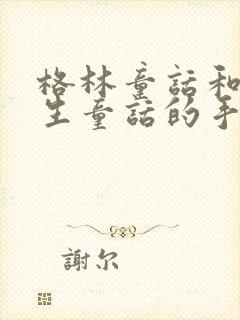 格林童話和
生童話的手
謝尔